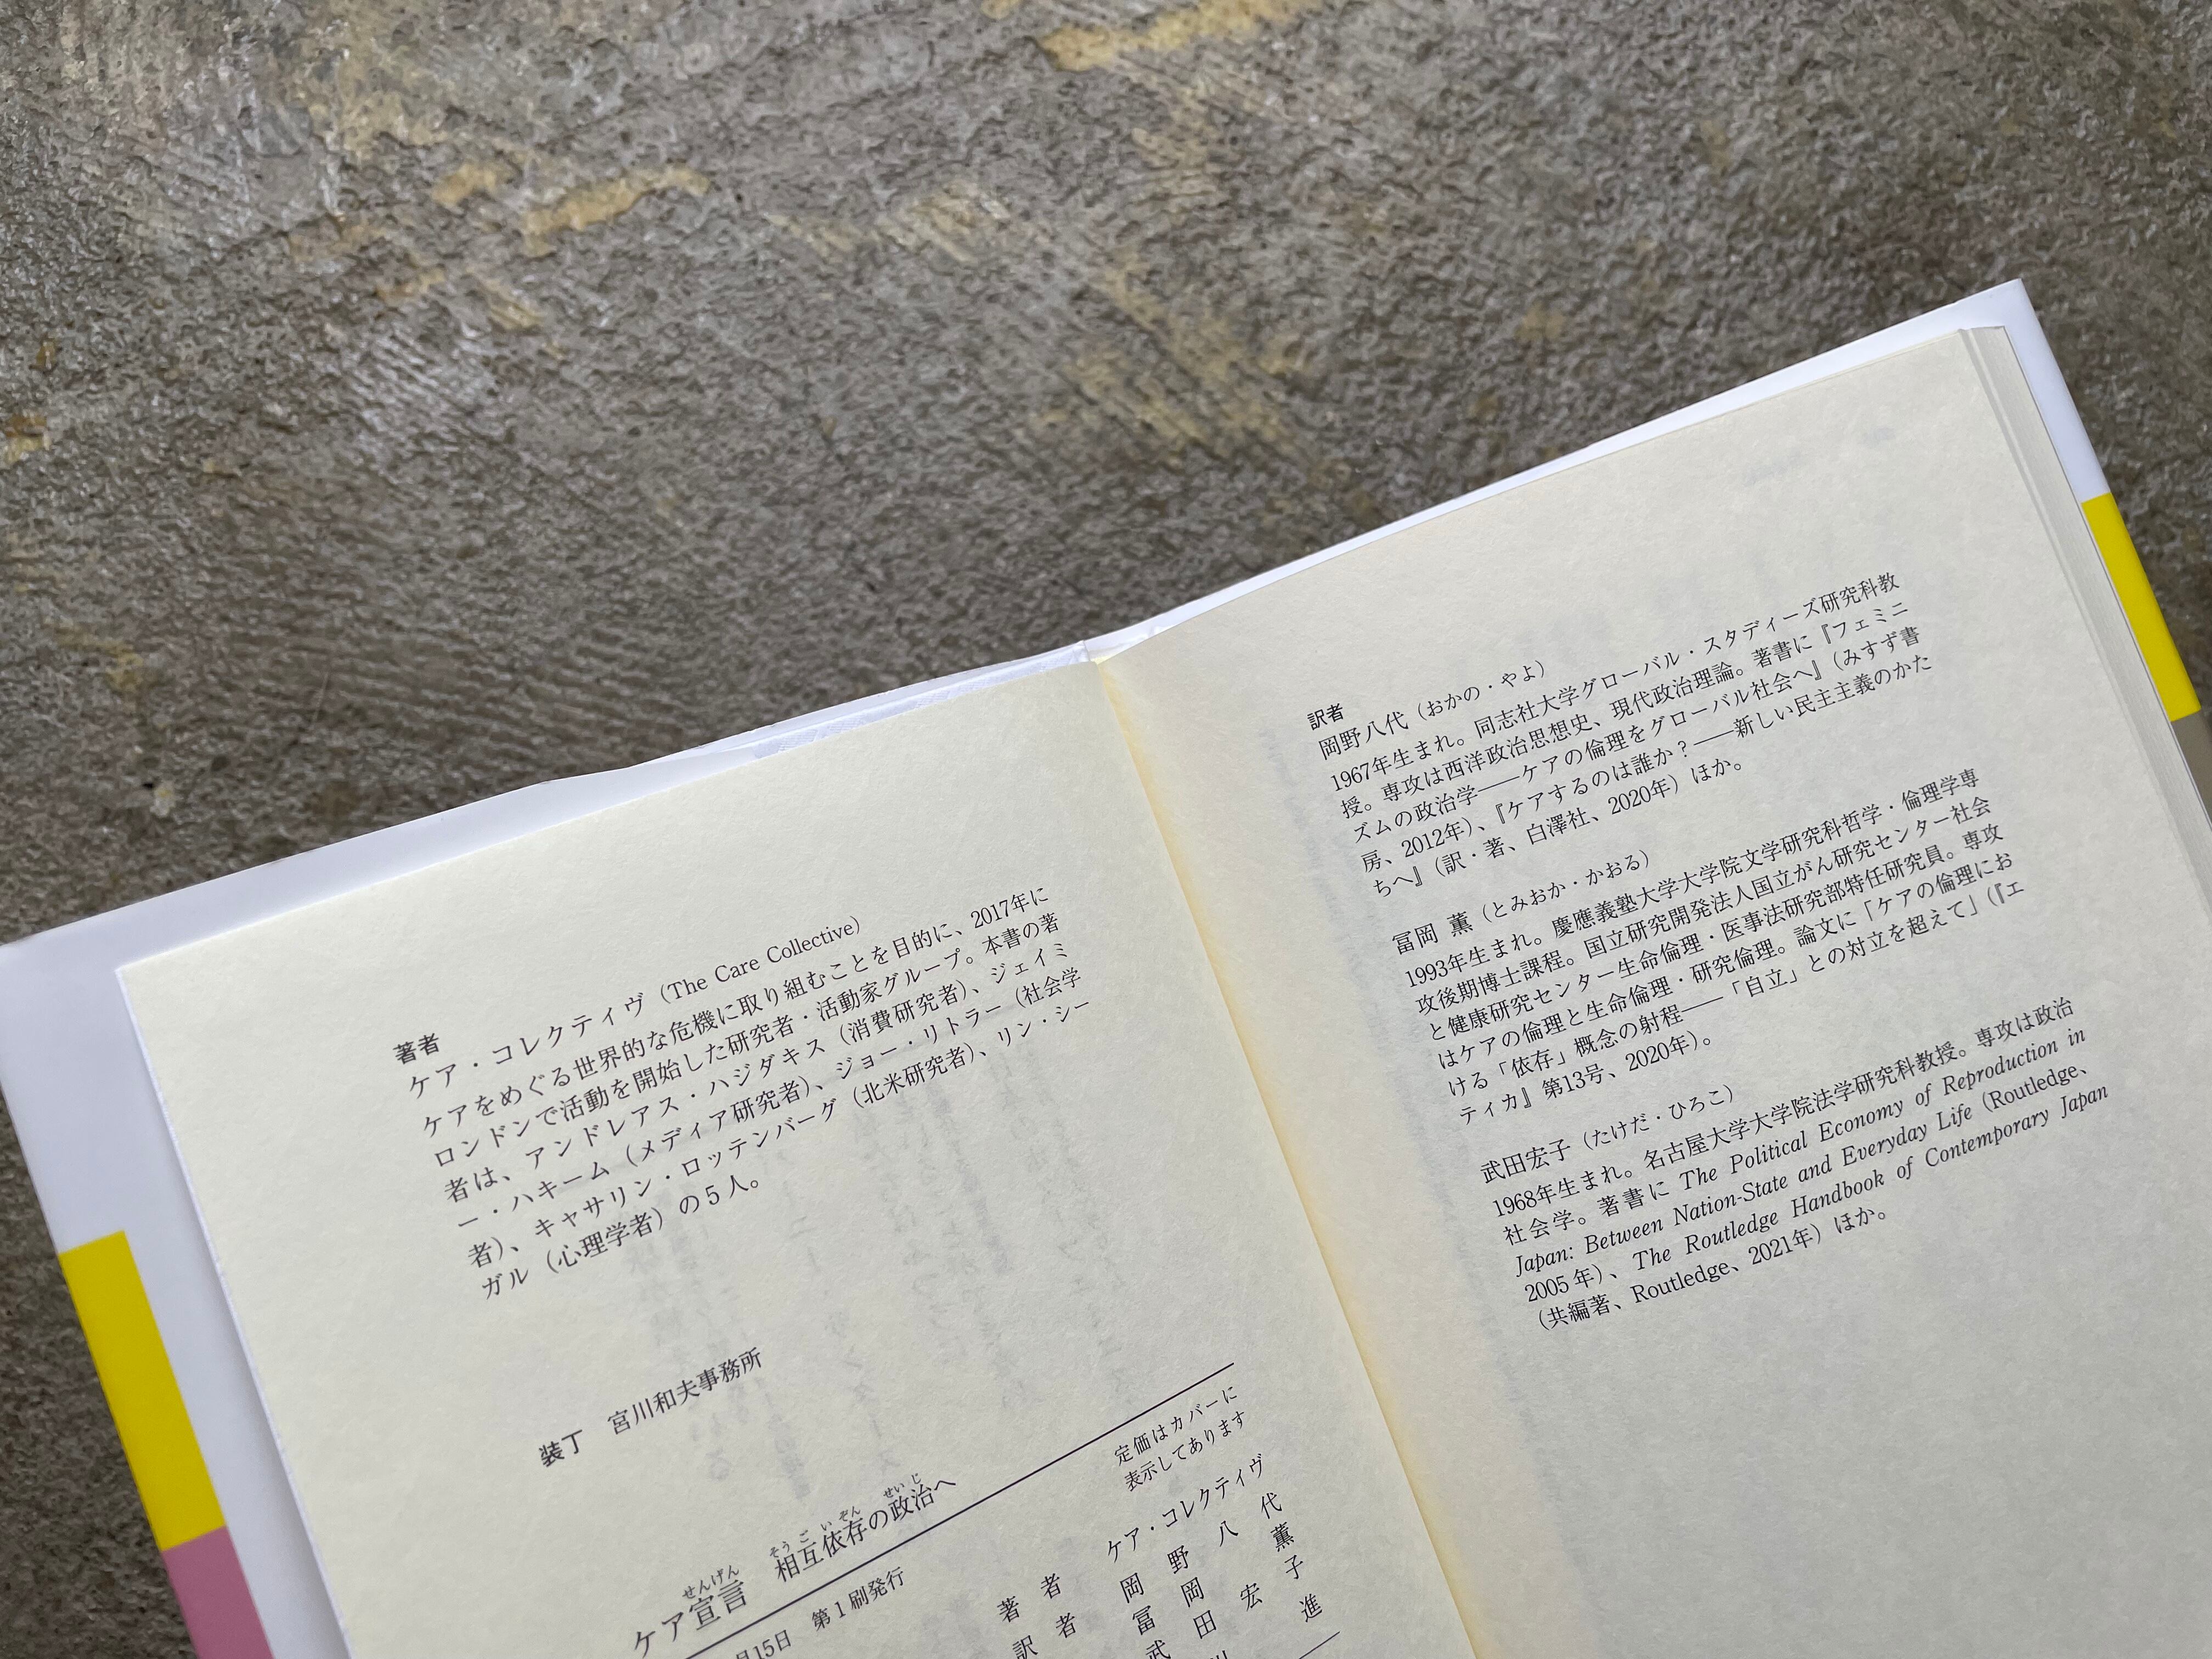 著者
ケア・コレクティヴ（The Care Collective）
ケアをめぐる世界的な危機に取り組むことを目的に、2017年に
ロンドンで活動を開始した研究者・活動家グループ。本書の著
者は、アンドレアス・ハジダキス（消費研究者）、ジェイミ
ー・ハキーム（メディア研究者）、ジョー・リトラー（社会学
者）、キャサリン・ロッテンバーグ（北米研究者）、リン・シー
ガル（心理学者）の5人。
装丁　宮川和夫事務所
定価はカバーに
表示してあります
せんげん　そうごいぞん　せいじ
ケア宣言　相互依存の政治へ
月15日　第1刷発行
著者　ケア・コレクティヴ
訳者　岡野八代
冨岡　薫
武田宏子
進
訳者
岡野八代（おかの・やよ）
1967年生まれ。同志社大学グローバル・スタディーズ研究科教
授。専攻は西洋政治思想史、現代政治理論。著書に『フェミニ
ズムの政治学――ケアの倫理をグローバル社会へ』（みすず書
房、2012年）、『ケアするのは誰か？――新しい民主主義のかた
ちへ』（訳・著、白澤社、2020年）ほか。
冨岡　薫（とみおか・かおる）
1993年生まれ。慶應義塾大学大学院文学研究科哲学・倫理学専
攻後期博士課程。国立研究開発法人国立がん研究センター社会
と健康研究センター生命倫理・医事法研究部特任研究員。専攻
はケアの倫理と生命倫理・研究倫理。論文に「ケアの倫理にお
ける「依存」概念の射程――「自立」との対立を超えて」（『エ
ティカ』第13号、2020年）。
武田宏子（たけだ・ひろこ）
1968年生まれ。名古屋大学大学院法学研究科教授。専攻は政治
社会学。著書に The Political Economy of Reproduction in
Japan: Between Nation-State and Everyday Life（Routledge、
2005年）、The Routledge Handbook of Contemporary Japan
（共編著、Routledge、2021年）ほか。